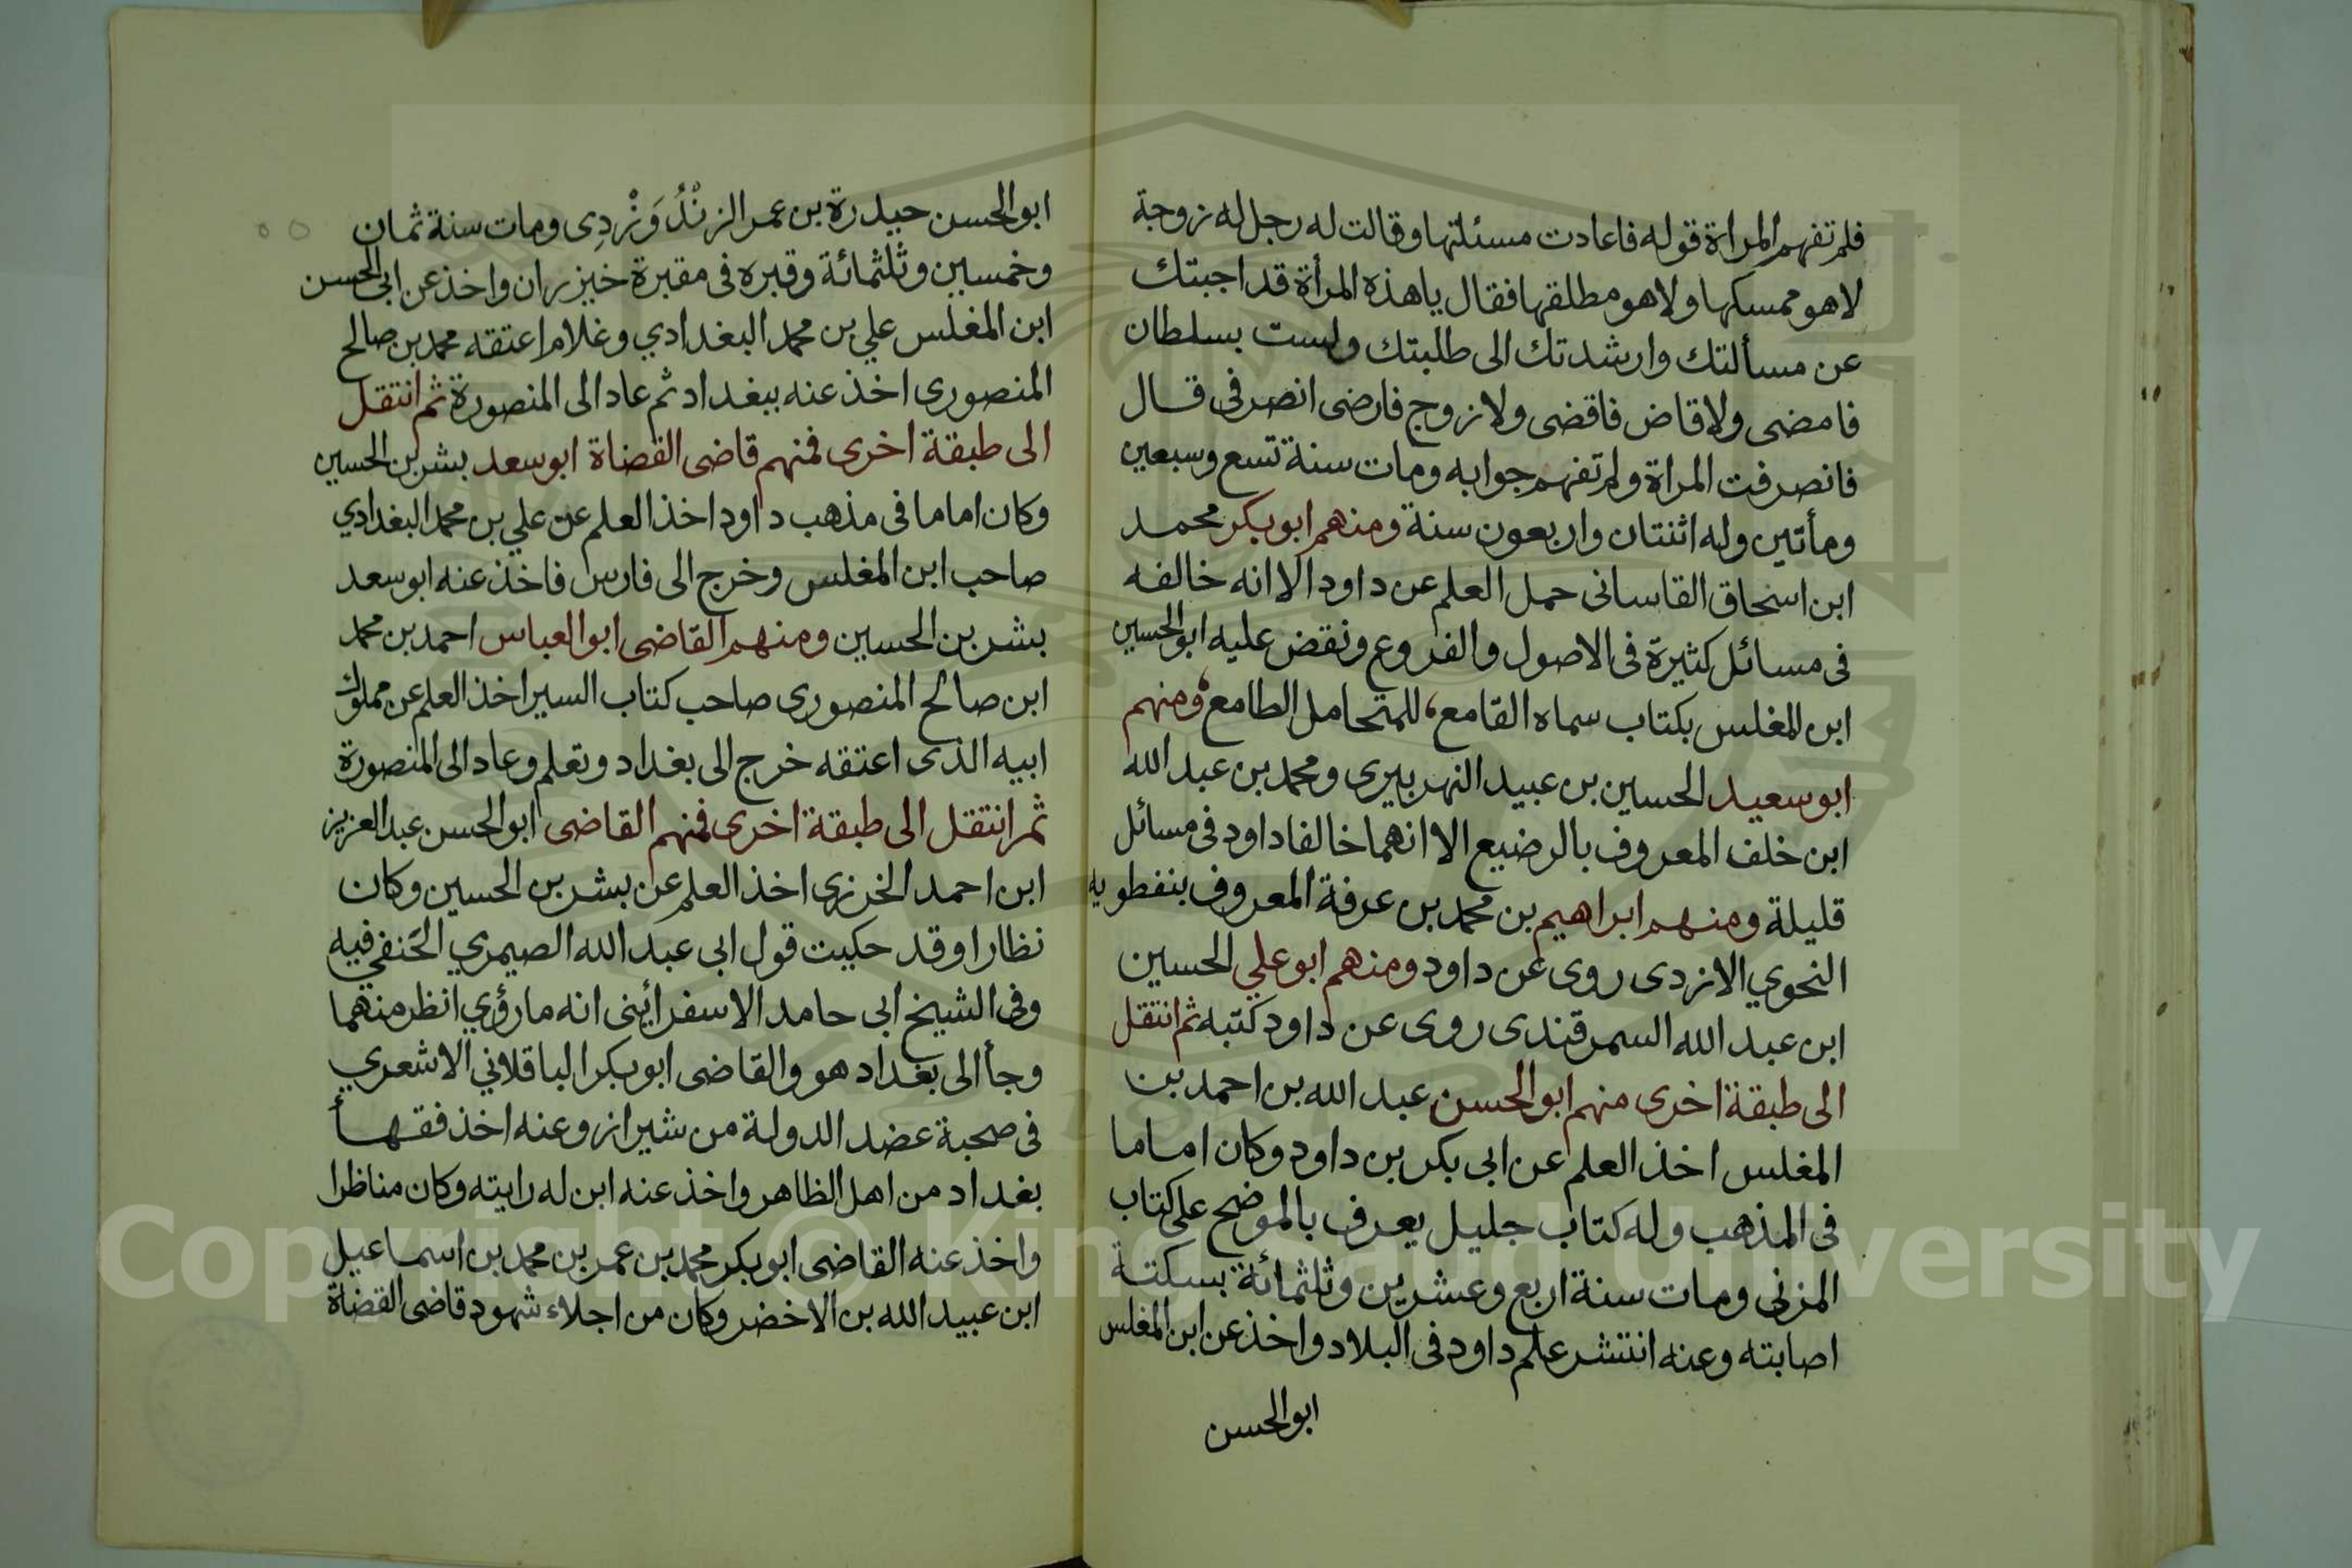 فلم تفهم المراة قوله فاعادت مسئلتها وقالت له رجل له زوجة
لا هو ممسكها ولا هو مطلقها فقال يا هذه المرأة قد اجبتك
عن مسألتك وارشدتك الى طلبتك ولست بسلطان
فامضى ولا قاض فاقضى ولا زوج فارضى انصرفى قال
فانصرفت المراة ولم تفهم جوابه ومات سنة تسع وسبعين
ومأتين وله اثنتان واربعون سنة ومنهم ابو بكر محمد
ابن اسحاق القاسانى حمل العلم عن داود الا انه خالفه
فى مسائل كثيرة فى الاصول والفروع ونقض عليه ابو الحسين
ابن المغلس بكتاب سماه القامع، للمتحامل الطامع، ومنهم
ابو سعيد الحسين بن عبيد النهربيرى ومحمد بن عبد الله
ابن خلف المعروف بالرضيع الا انهما خالفا داود فى مسائل
قليلة ومنهم ابراهيم بن محمد بن عرفة المعروف بنفطويه
النحوي الازدى روى عن داود ومنهم ابو علي الحسين
ابن عبد الله السمرقندى روى عن داود كتبه ثم انتقل
الى طبقة اخرى منهم ابو الحسن عبد الله بن احمد بن
المغلس اخذ العلم عن ابى بكر بن داود وكان اماما
فى المذهب وله كتاب جليل يعرف بالموضح على كتاب
المزنى ومات سنة اربع وعشرين وثلثمائة بسكتة
اصابته وعنه انتشر علم داود فى البلاد واخذ عن ابن المغلس
ابو الحسن
ابو الحسن حيدرة بن عمر الزنْدُوَرْدِى ومات سنة ثمان
وخمسين وثلثمائة وقبره فى مقبرة خيزران واخذ عن ابى الحسن
ابن المغلس علي بن محمد البغدادي وغلام اعتقه محمد بن صالح
المنصورى اخذ عنه ببغداد ثم عاد الى المنصورة ثم انتقل
الى طبقة اخرى فمنهم قاضى القضاة ابو سعد بشر بن الحسين
وكان اماما فى مذهب داود اخذ العلم عن علي بن محمد البغدادي
صاحب ابن المغلس وخرج الى فارس فاخذ عنه ابو سعد
بشر بن الحسين ومنهم القاضى ابو العباس احمد بن محمد
ابن صالح المنصورى صاحب كتاب السير اخذ العلم عن مملوك
ابيه الذى اعتقه خرج الى بغداد وتعلم وعاد الى المنصورة
ثم انتقل الى طبقة اخرى فمنهم القاضى ابو الحسن عبد العزيز
ابن احمد الخرزى اخذ العلم عن بشر بن الحسين وكان
نظارا وقد حكيت قول ابى عبد الله الصيمري الحَنفي فيه
وفى الشيخ ابى حامد الاسفرائينى انه ما رؤي انظر منهما
وجأ الى بغداد هو والقاضى ابو بكر الباقلاني الاشعري
فى صحبة عضد الدولة من شيراز وعنه اخذ فقهأ
بغداد من اهل الظاهر واخذ عنه ابن له رايته وكان مناظرا
واخذ عنه القاضى ابو بكر محمد بن عمر بن محمد بن اسماعيل
ابن عبيد الله بن الاخضر وكان من اجلاء شهود قاضى القضاة
Copyright © King Saud University